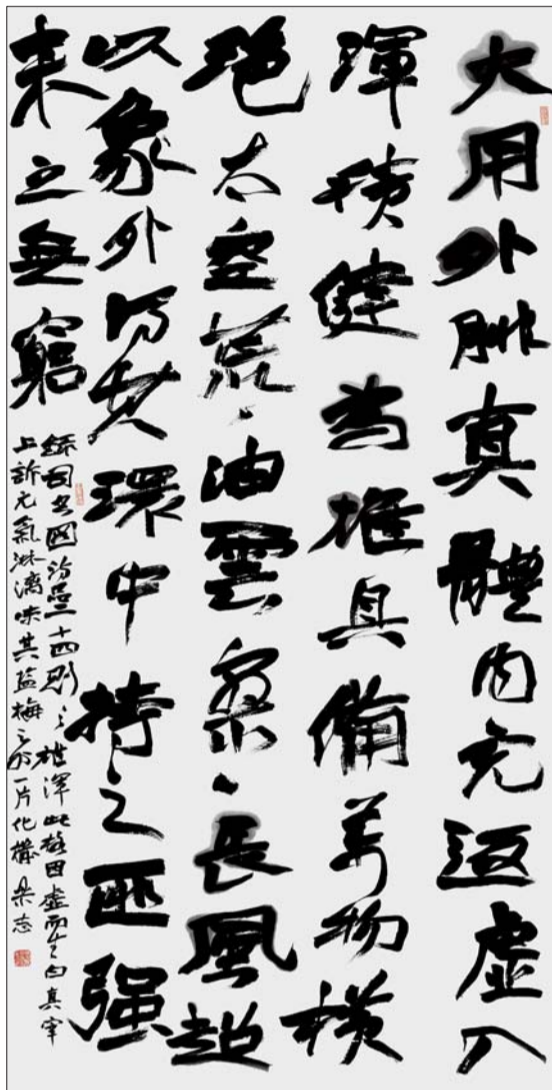 大用外腓真體内充返虛入
渾積健為雄具備萬物橫
絕太空荒〻油雲寥〻長風超
以象外得其環中持之匪强
来之無窮
司空圖詩品二十四則之雄渾此因虛而生真宰
上訴元氣淋漓味其鹽梅之外一片化機